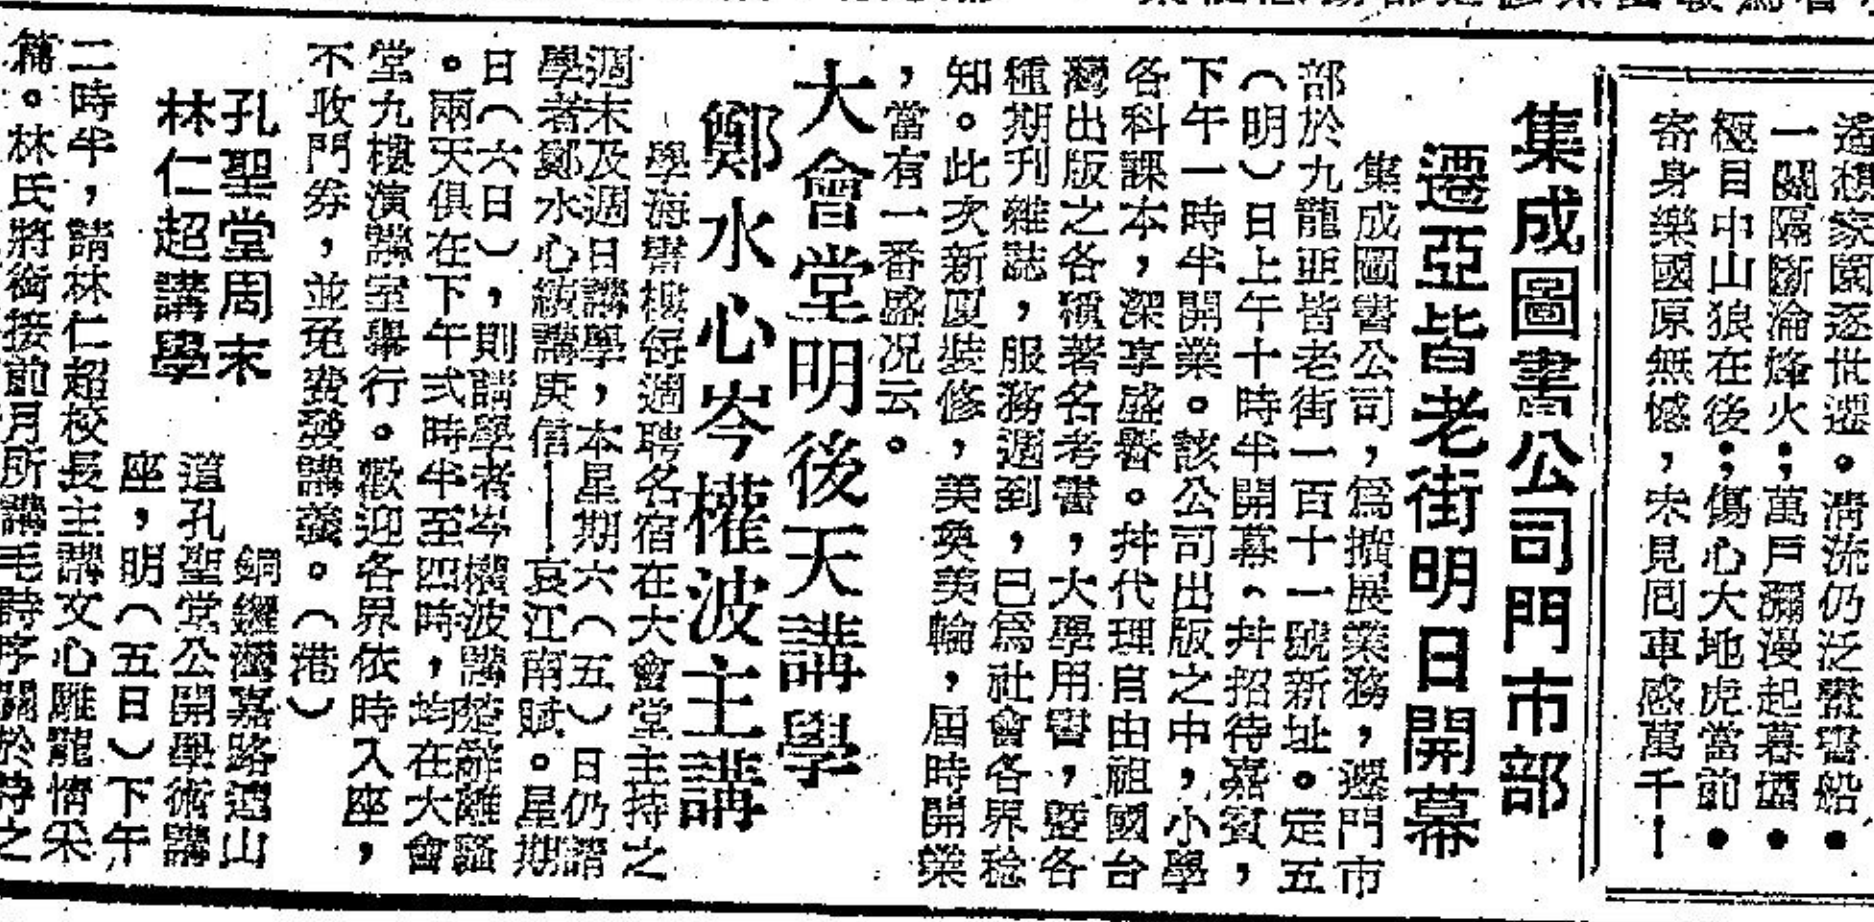 遙想家園逐世遷。清流仍泛舊書船●
一關隔斷淪烽火；萬戶瀰漫起暮煙●
極目中山狼在後；傷心大地虎當前●
寄身樂國原無憾，未見囘車感萬千！
集成圖書公司門市部
遷亞皆老街明日開幕
集成圖書公司，爲擴展業務，遷門市
部於九龍亞皆老街一百十一號新址。定五
（明）日上午十時半開幕，幷招待嘉賓，
下午一時半開業。該公司出版之中，小學
各科課本，深享盛譽。幷代理自由祖國台
灣出版之各種著名考書，大學用書，暨各
種期刊雜誌，服務週到，已爲社會各界稔
知。此次新厦裝修，美奐美輪，屆時開業
，當有一番盛况云。
大會堂明後天講學
鄭水心岑權波主講
學海書樓每週聘名宿在大會堂主持之
週末及週日講學，本星期六（五）日仍請
學者鄭水心續講庾信——哀江南賦。星期
日（六日），則請學者岑權波講楚辭離騷
。兩天俱在下午弍時半至四時，均在大會
堂九樓演講室舉行。歡迎各界依時入座，
不收門券，並免費發講義。（港）
孔聖堂周末
林仁超講學
銅鑼灣嘉路連山
道孔聖堂公開學術講
座，明（五日）下午
二時半，請林仁超校長主講文心雕龍情采
篇。林氏將銜接前月所講毛詩序關於詩之